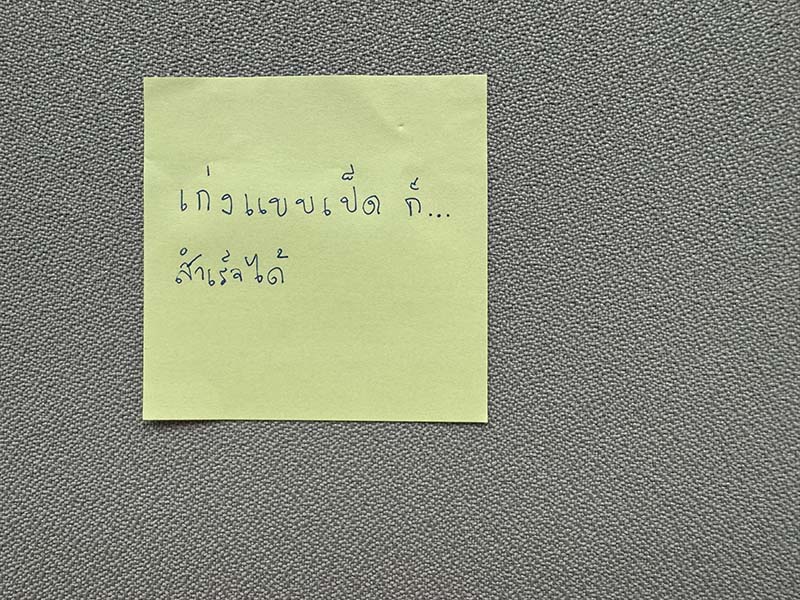 เก่งแบบเป็ด ก็...
สำเร็จได้